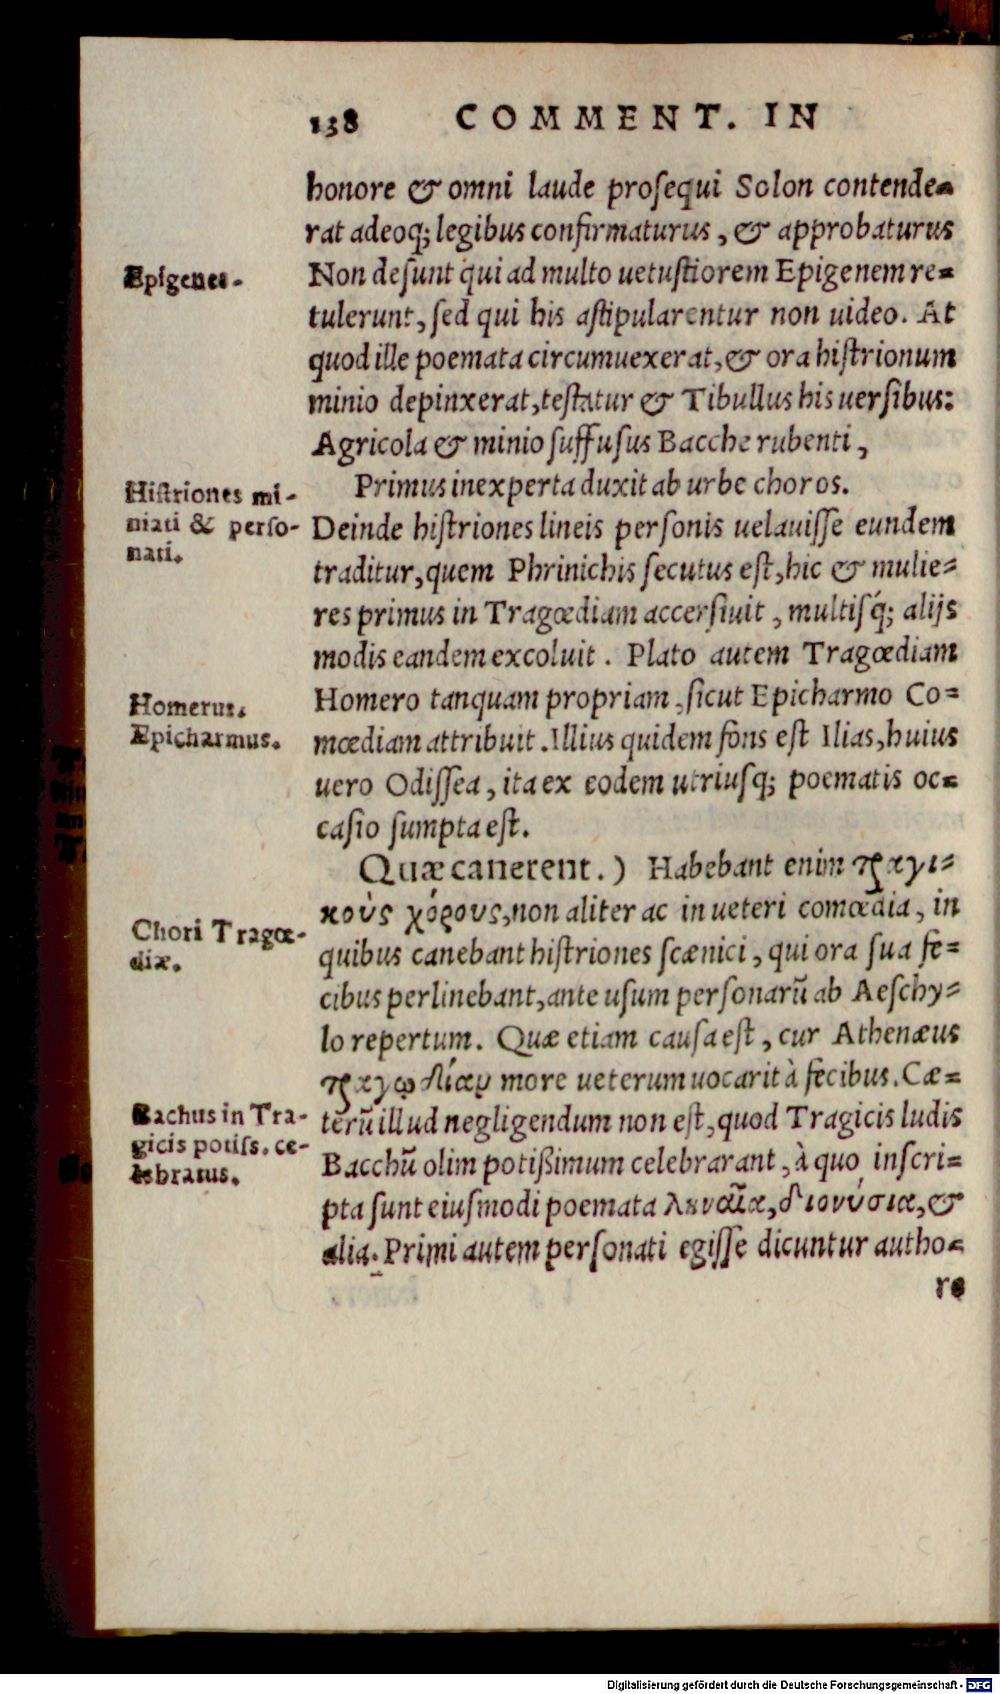 138 COMMENT. IN
honore & omni laude prosequi Solon contende=
rat adeoq; legibus confirmaturus, & approbaturus
Epigenes.
Non desunt qui ad multo uetustiorem Epigenem re=
tulerunt, sed qui his astipularentur non uideo. At
quod ille poemata circumuexerat, & ora histrionum
minio depinxerat, testatur & Tibullus his uersibus:
Agricola & minio suffusus Bacche rubenti,
Primus inexperta duxit ab urbe choros.
Histriones mi-
niati & perso-
nati.
Deinde histriones lineis personis uelauisse eundem
traditur, quem Phrinichis secutus est, hic & mulie=
res primus in Tragœdiam accersiuit, multisq́; alijs
modis eandem excoluit. Plato autem Tragœdiam
Homerus.
Epicharmus.
Homero tanquam propriam, sicut Epicharmo Co=
mœdiam attribuit. Illius quidem fons est Ilias, huius
uero Odissea, ita ex eodem utriusq; poematis oc=
casio sumpta est.
Quæ canerent.) Habebant enim τραγι-
κοὺς χόρους, non aliter ac in ueteri comœdia, in
Chori Tragœ-
diæ.
quibus canebant histriones scænici, qui ora sua fe=
cibus perlinebant, ante usum personarū ab Aeschy=
lo repertum. Quæ etiam causa est, cur Athenæus
τραγῳδίαν more ueterum uocarit à fecibus. Cæ=
Bachus in Tra-
gicis potiss. ce-
lebratus.
terū illud negligendum non est, quod Tragicis ludis
Bacchū olim potißimum celebrarant, à quo inscri=
pta sunt eiusmodi poemata ληναῖα, διονύσια, &
alia. Primi autem personati egisse dicuntur autho=
re
Digitalisierung gefördert durch die Deutsche Forschungsgemeinschaft - DFG